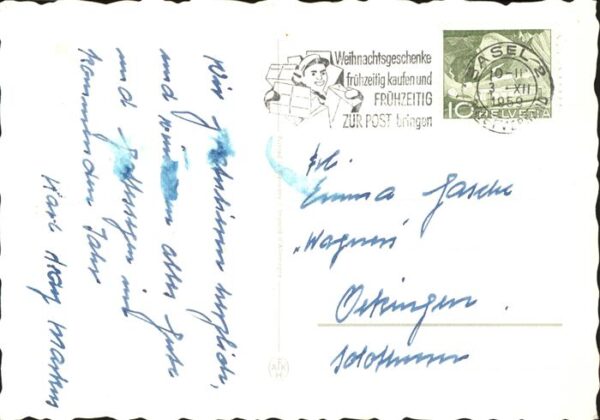 Wir gratulieren herzlich,
und wünschen alles Gute
und Gottessegen im
kommenden Jahr
Karl
Weihnachtsgeschenke
frühzeitig kaufen und
FRÜHZEITIG
ZUR POST bringen
BASEL 2
10-11
3. XII
1959
10 HELVETIA
Frl.
Emma Gasche
"Wagners"
Oekingen.
Solothurn